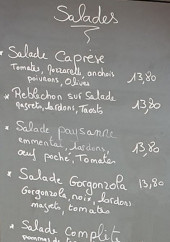 Salades
* Salade Caprese
Tomates, Mozzarella, anchois
poivrons, Olives 13,80
* Reblochon sur Salade
gesiers, lardons, Toasts 13,80
* Salade paysanne
emmental, lardons,
œuf poché, Tomates 13,80
* Salade Gorgonzola 13,80
Gorgonzola, noix, lardons
magrets, tomates
* Salade Complète
pommes de